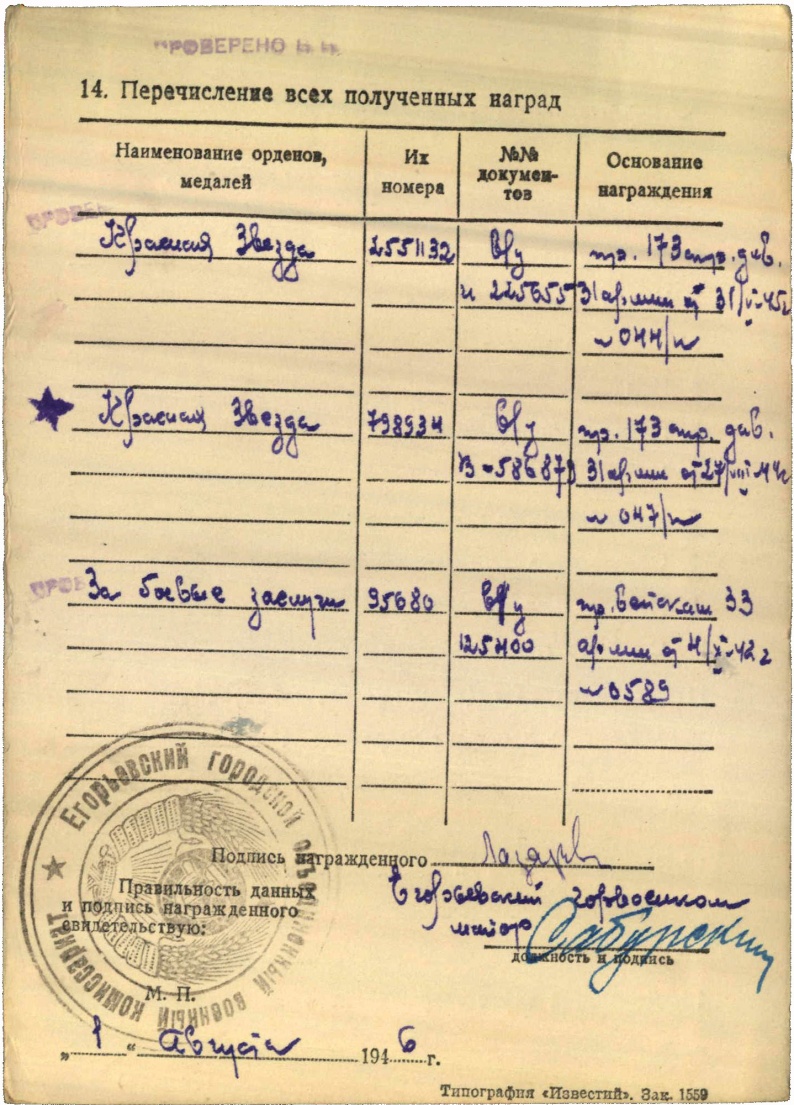 ПРОВЕРЕНО
14. Перечисление всех полученных наград
Наименование орденов, медалей
Их номера
№№ документов
Основание награждения
Красная Звезда 2551132 в/у пр. 173 стр. див.
н 225655 31 армии от 31/ -45г
№ 044/н
Красная Звезда 798934 в/у пр. 173 стр. див.
В № 586873 31 армии от 27/VIII-44г
№ 047/н
За боевые заслуги 95680 в/у пр. Войскам 33
125400 армии от 4/XI-42 г
№ 0589
Егорьевский городской объединенный военный комиссариат
Подпись награжденного Лазарев
Правильность данных
и подпись награжденного
свидетельствую:
Егорьевский горвоенком
майор Сабурский
должность и подпись
М. П.
„ 1 “ Августа 1946 г.
Типография «Известий». Зак. 1559